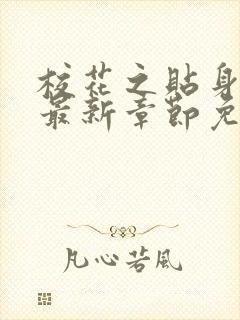 校花之貼身
最新章節免
凡心若風